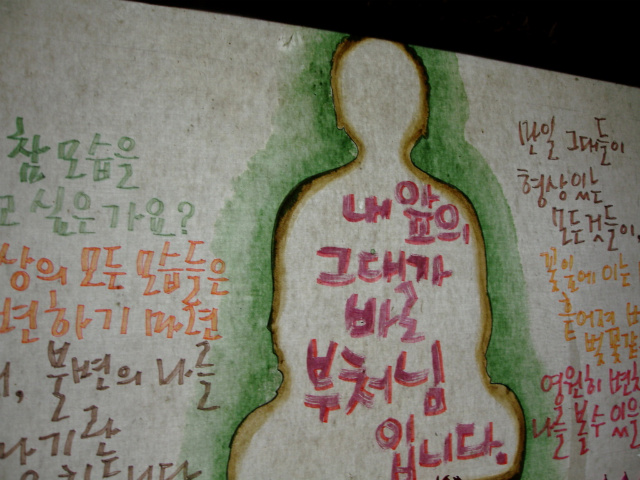 참 모습을
싶은가요?
상의 모든 모습들은
변하기 마련
불변의 나를
내 앞의
그대가
바로
부처님
입니다.
만일 그대들이
형상있는
모든것들이,
꽃잎에 이는
흩어져
영원히 변치
나를 볼수 있을